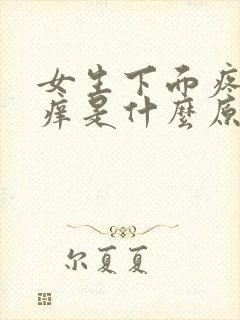 女生下而疼
痒是什麼原
尔夏夏